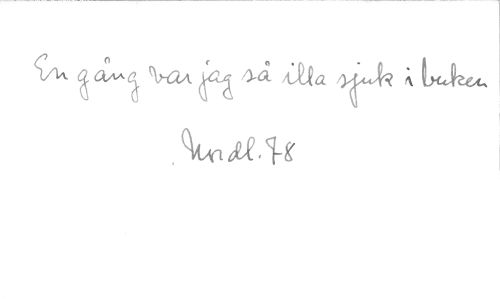 En gång var jag så illa sjuk i buken
Nordl. 78